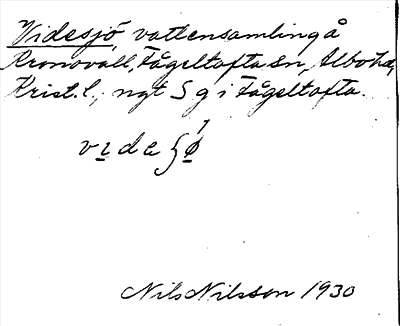 Videsjö, vattensamling å
Kronovall, Fågeltofta sn, Albo hd,
Krist. l., ngt S g i Fågeltofta.
Nils Nilsson 1930